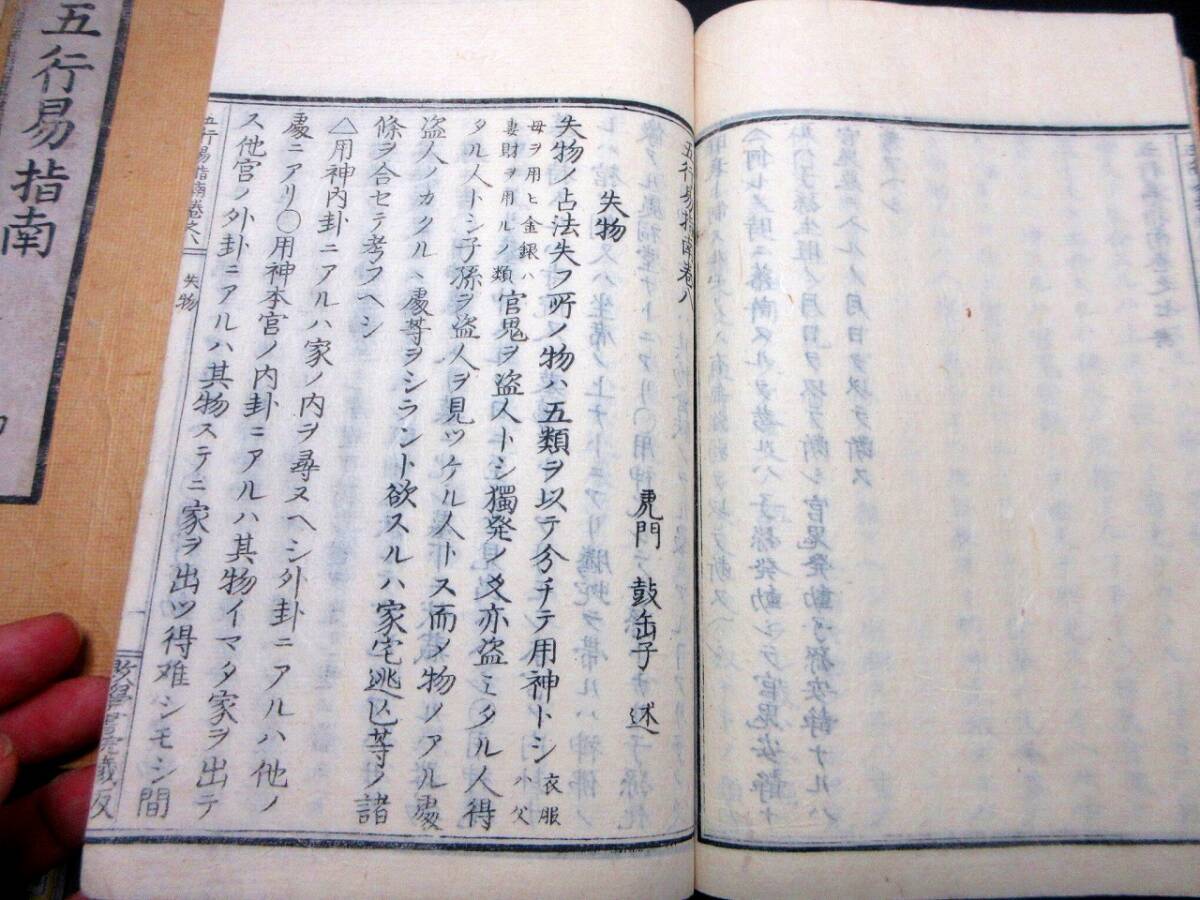 五行易指南
五行易指南卷八
失物
虎門 鼓缶子 述
失物ノ占法失フ所ノ物ハ五類ヲ以テ分チテ用神トシ衣服ハ父
母ヲ用ヒ金銀ハ妻財ヲ用ルノ類官鬼ヲ盗人トシ獨発ノ爻亦盗ミタル人得
タル人トシ子孫ヲ盗人ヲ見ツケル人トス而メ物ノアル處
盗人ノカクルヽ處等ヲシラント欲スルハ家宅逃亡等ノ諸
條ヲ合セテ考フヘシ
△用神内卦ニアルハ家ノ内ヲ尋ヌヘシ外卦ニアルハ他ノ
處ニアリ〇用神本宮ノ内卦ニアルハ其物イマタ家ヲ出テ
ス他宮ノ外卦ニアルハ其物ステニ家ヲ出ツ得难シモシ間
五行易指南卷之八
失物
一